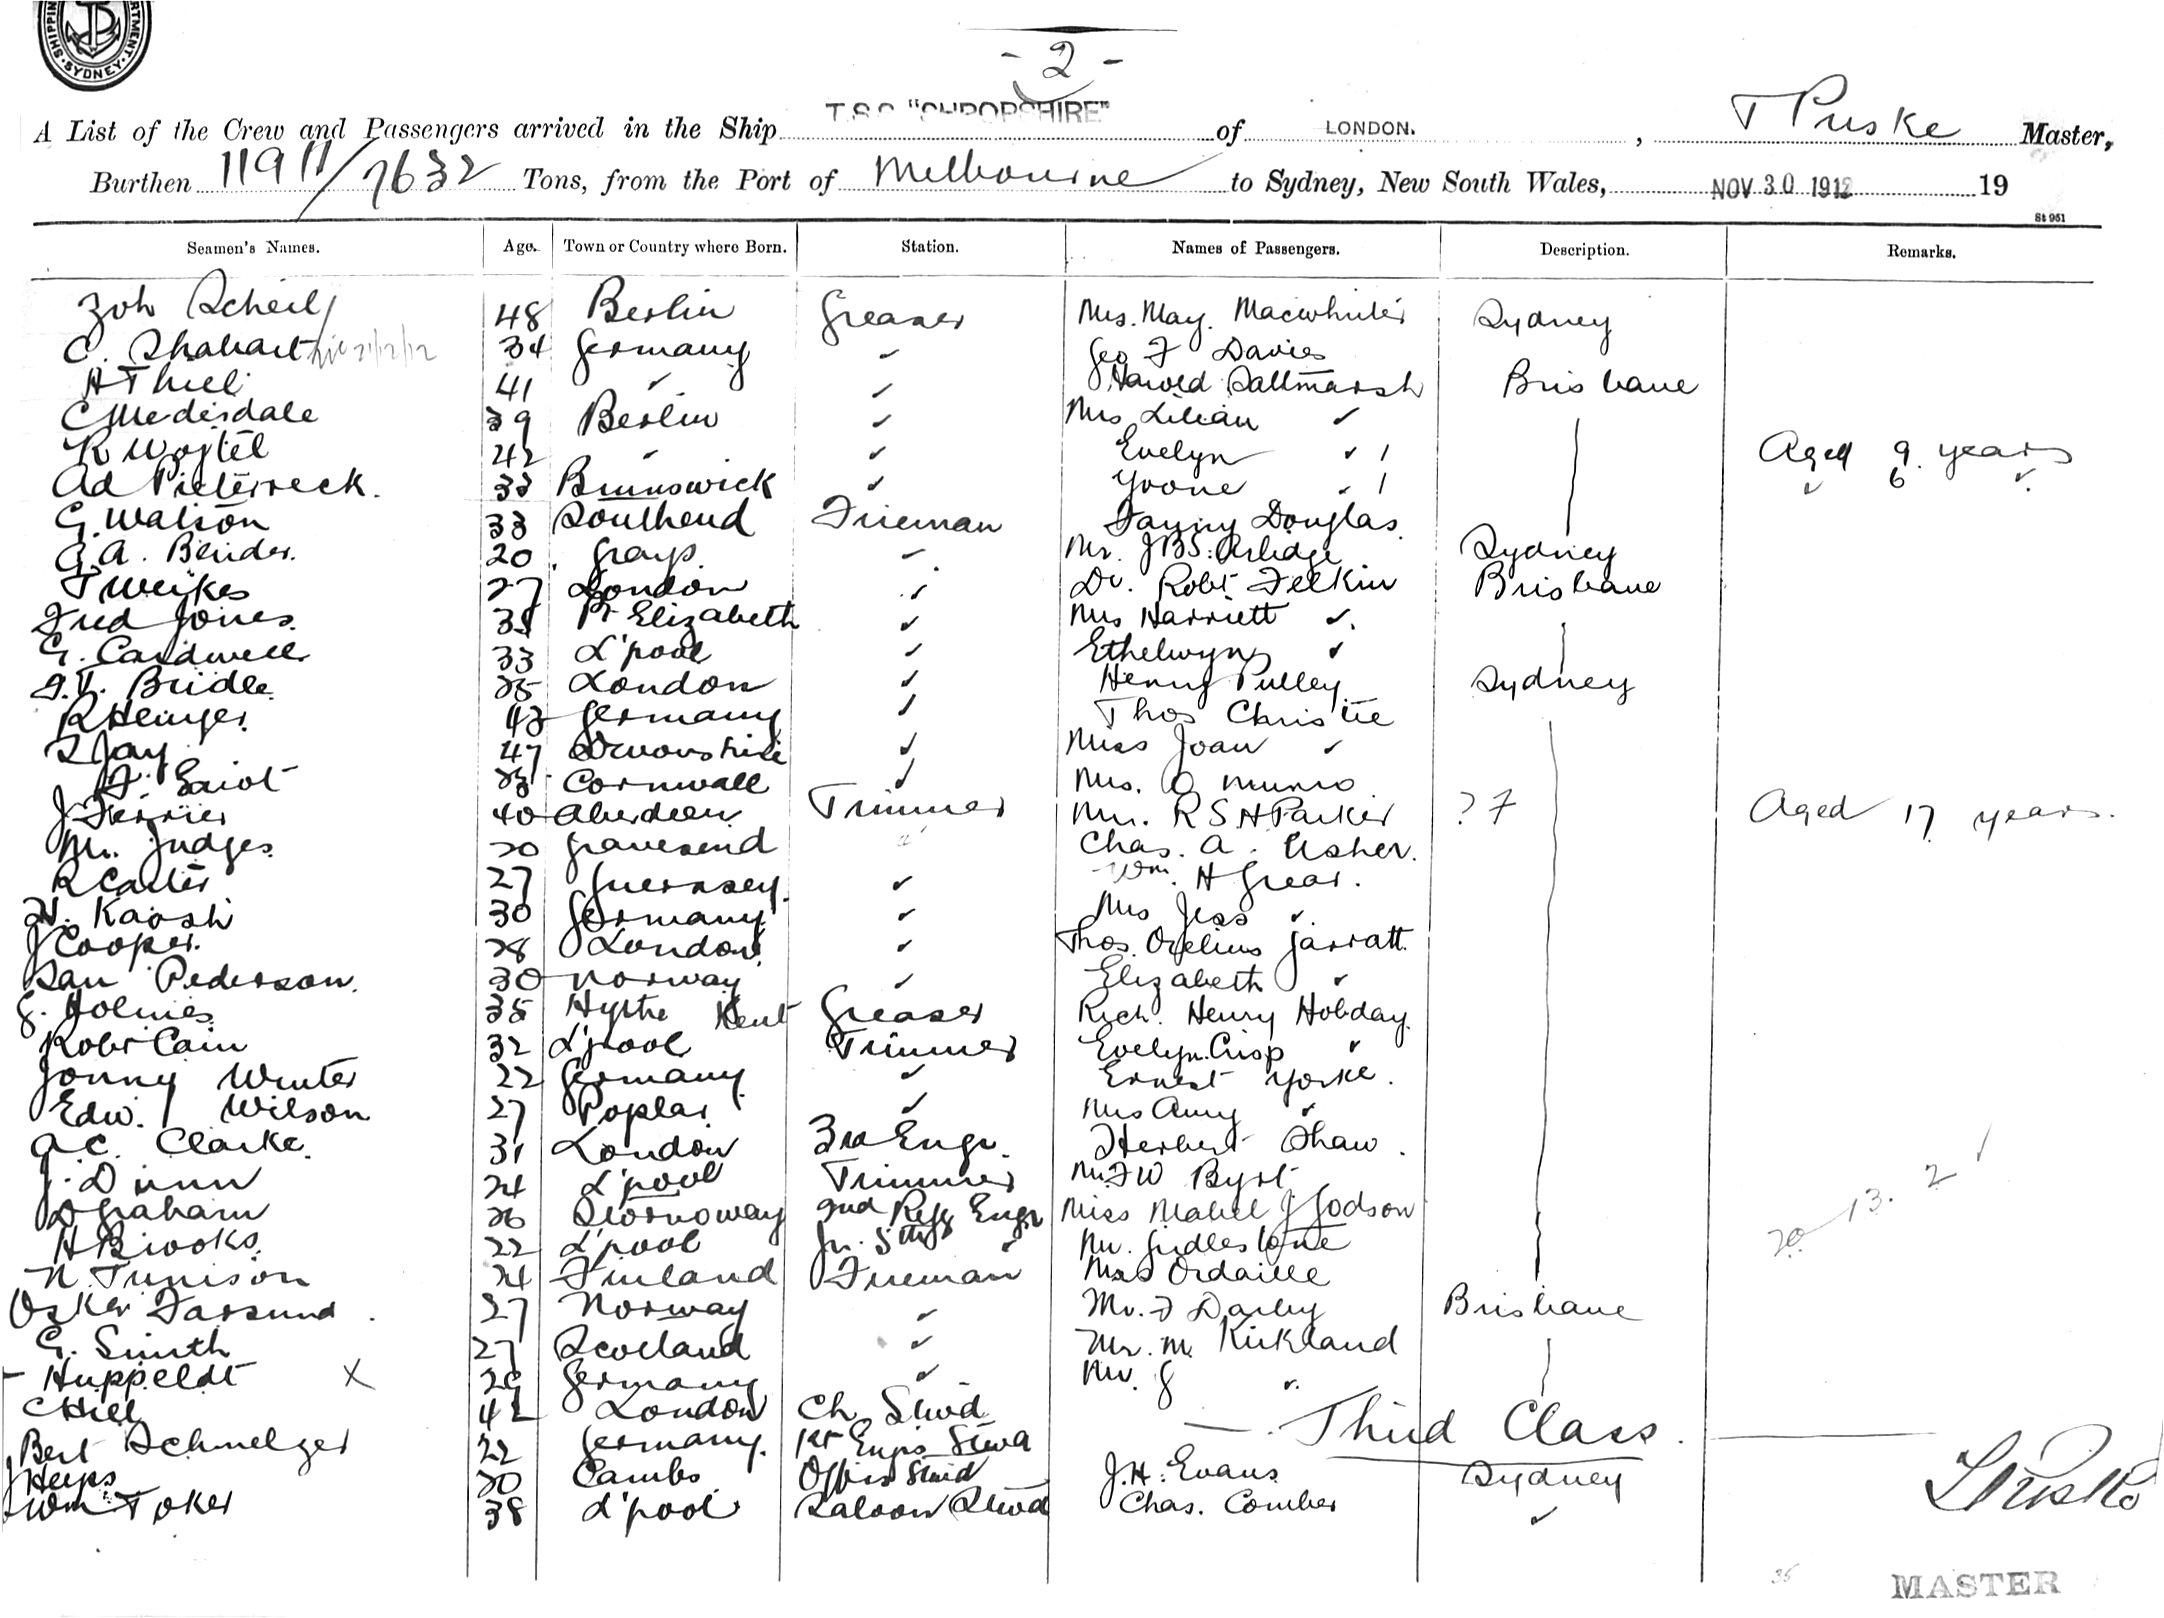 SHIPPING DEPARTMENT SYDNEY
- 2 -
A List of the Crew and Passengers arrived in the Ship T.S.S. "SHROPSHIRE" of LONDON. , Master,
Burthen 11911/7632 Tons, from the Port of Melbourne to Sydney, New South Wales, NOV 30 1912 19
St 951
Seamen's Names. Age. Town or Country where Born. Station. Names of Passengers. Description. Remarks.
Joh Scheil 48 Berlin Greaser Mrs. May. Macwhirter Sydney
C. 34 Germany ✓ Geo F Davies
A Thiel 41 ✓ ✓ Harold Saltmarsh Brisbane
39 Berlin ✓ Mrs Lilian ✓
R Wojtel 42 ✓ ✓ Evelyn ✓ 1 Aged 9 years
Ad Pieterreck. 33 Brunswick ✓ Yvone ✓ 1 ✓ 6 ✓
G. Watson 33 Southend Fireman Fanny Douglas
G. A. Bender. 20 Grays ✓ Mr. J B S. Sydney
T Weikes 27 London ✓ Dr. Robt Felkin Brisbane
Fred Jones. Pt Elizabeth ✓ Mrs Harriett ✓
G. Cardwell 33 L'pool ✓ Ethelwyn ✓
Bridle 25 London ✓ Henry Pulley Sydney
R Heinger 43 Germany ✓ Thos Christie
S Jay 47 Devonshire ✓ Miss Joan ✓
F. Cornwall ✓ Mrs. O Munro
J Ferrier 40 Aberdeen Trimmer Mr. R S H Parker ? 7 Aged 17 years.
Wm. Judges. 20 Gravesend Chas. A. Usher.
R Carter 27 Guernsey ✓ Wm. H Grear.
30 Germany ✓ Mrs Jess ✓
J Cooper. 28 London ✓ Thos. Jarratt.
Dan Pederson. 30 Norway ✓ Elizabeth ✓
G. Holmes 35 Hythe Kent Greaser Rich. Henry Hobday
Robt Cain 32 L'pool Trimmer Evelyn Crisp ✓
Jonny Winter 22 Germany ✓ Ernest Yorke.
Edw. Wilson 27 Poplar ✓ Mrs Amy ✓
A. C. Clarke. 31 London 3rd Engr. Herbert Shaw.
J. Dunn 24 L'pool Trimmer Mr. F W Byrt
D Graham 26 Stornoway 2nd Refg Engr Miss Mabel J Jodson 20 13. 2 1
H Brooks. 22 L'pool Jr. 5th ✓ Mr. Girdlestone
N. Tunison 24 Finland Fireman Ordaille
Osker Farsund. 27 Norway ✓ Mr. F Darby Brisbane
G. Smith 27 Scotland ✓ Mr. M. Kirkland
- Huppeldt X Germany ✓ Mr. G ✓
C Hill 42 London Ch. Stwd - Third Class.
Bert Schmelzer 22 Germany. Engrs Stwd
J Heeps 20 Cambs Officrs Stwd J. H. Evans Sydney
Wm Toker 38 L'pool Saloon Stwd Chas. Comber ✓
35
MASTER